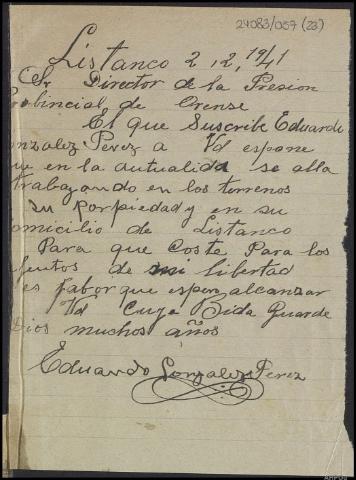 24083/057 (23)
Listanco 2 12, 1941
Sr Director de la Presion
Probincial de Orense
El que Suscribe Eduardo
onzalez Perez a Vd espone
ue en la autualida se alla
trabazando en los terrenos
su Porpiedad y en su
omicilio de Listanco
Para que Coste Para los
fentos de mi libertad
es fabor que espera alcanzar
Vd Cuya Bida Guarde
Dios muchos años
Eduardo Gonzalez Perez